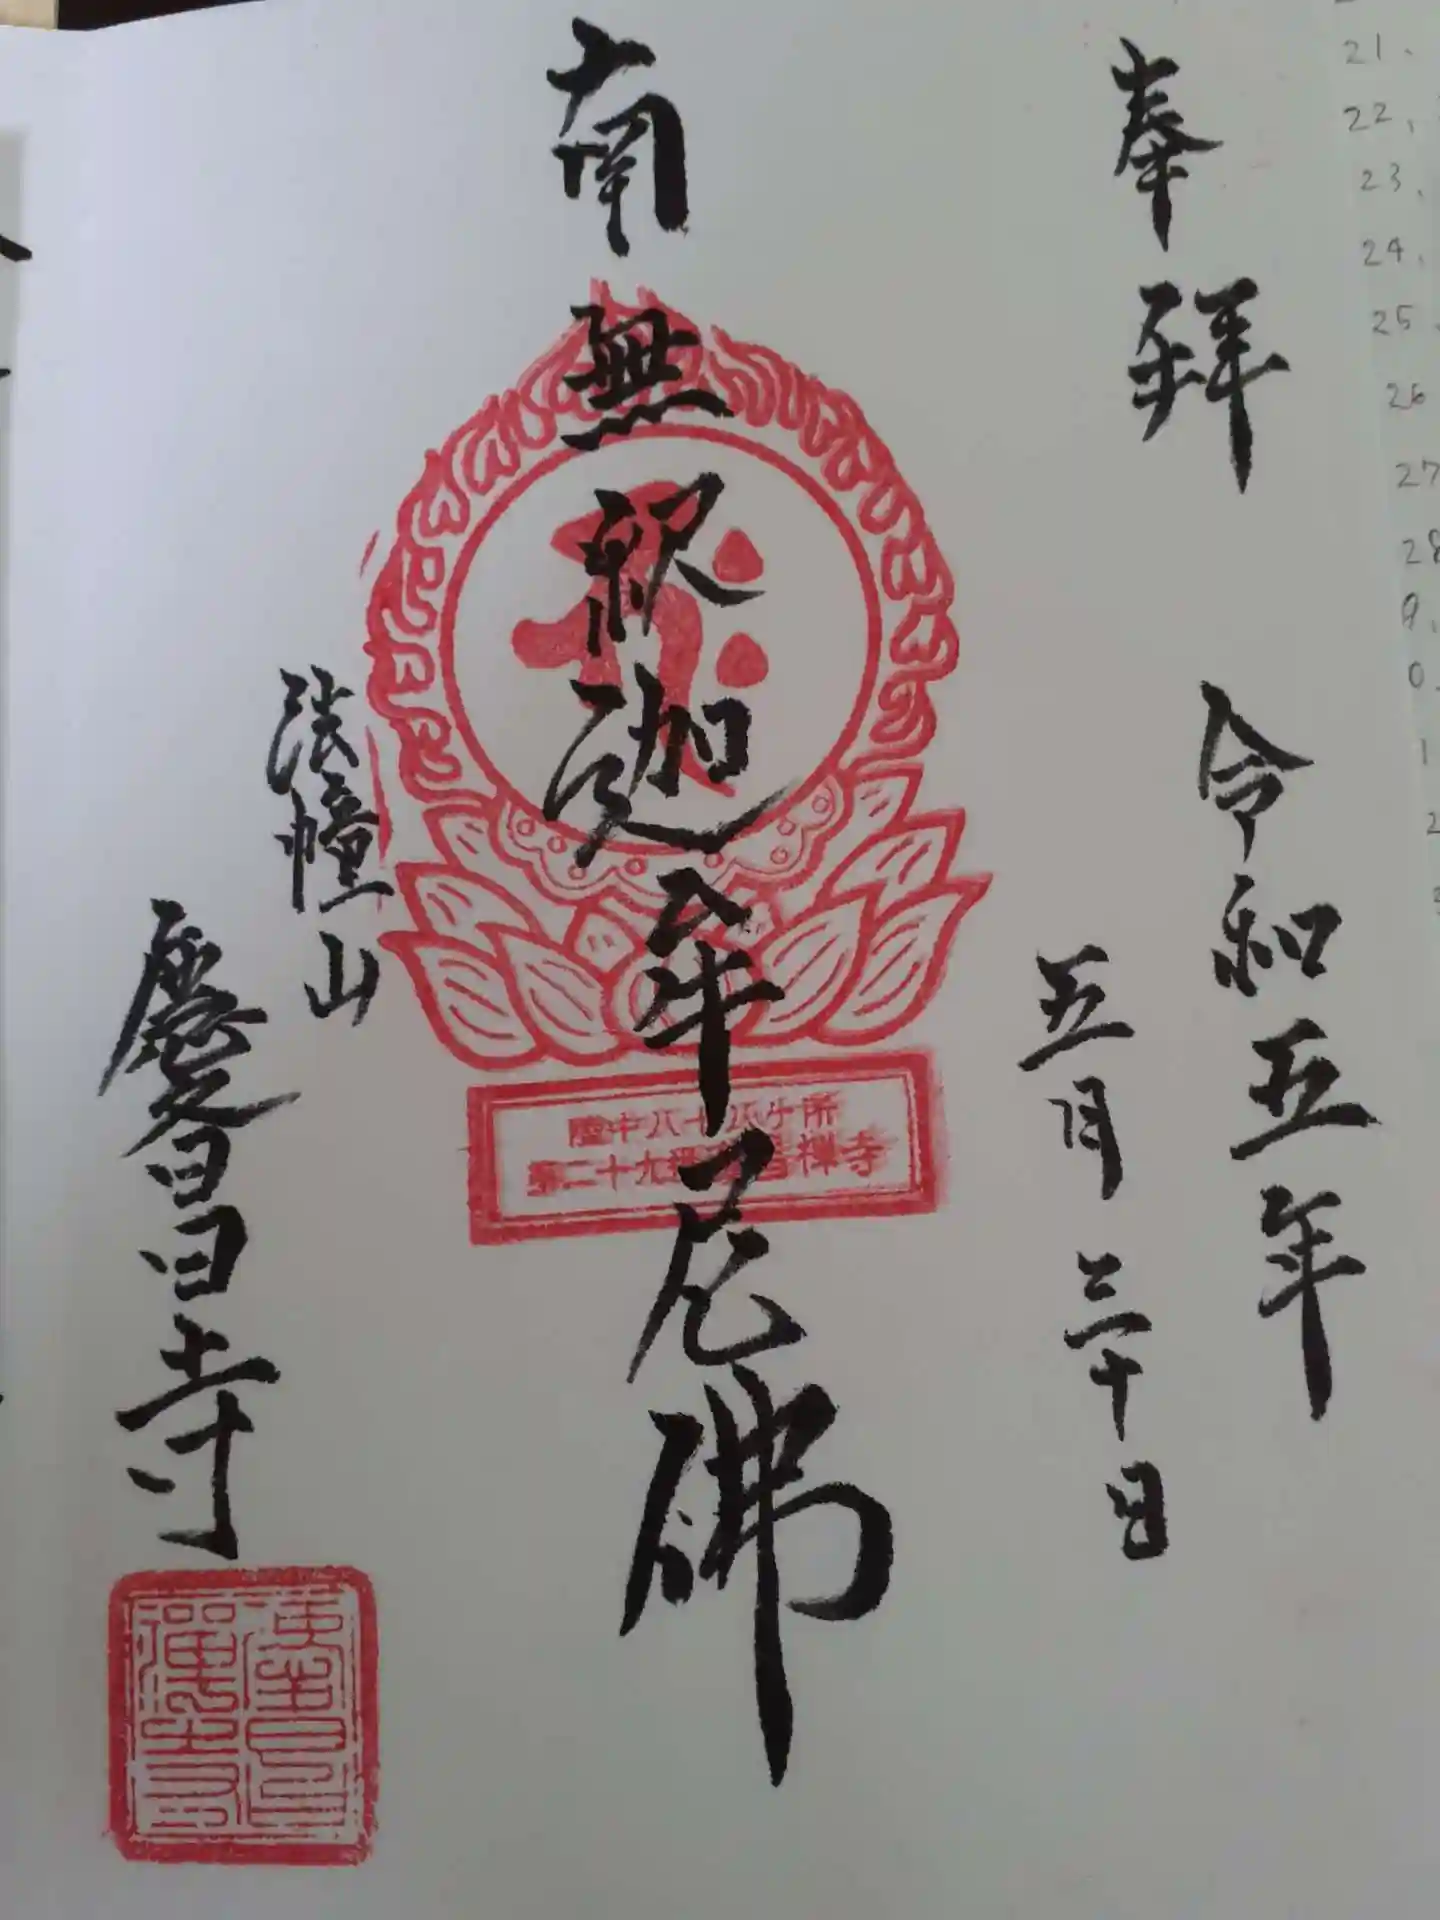 奉拝
令和五年
五月三十日
南無釈迦牟尼佛
陸中八十八ケ所
第二十九番慶昌禅寺
法幢山
慶昌寺
慶昌
禅寺
21.
22.
23.
24.
25.
26
27
28
9.
0.
1
2